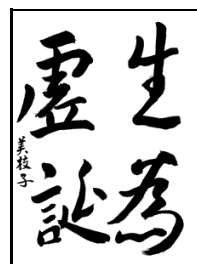 生為
虚誕
美枝子